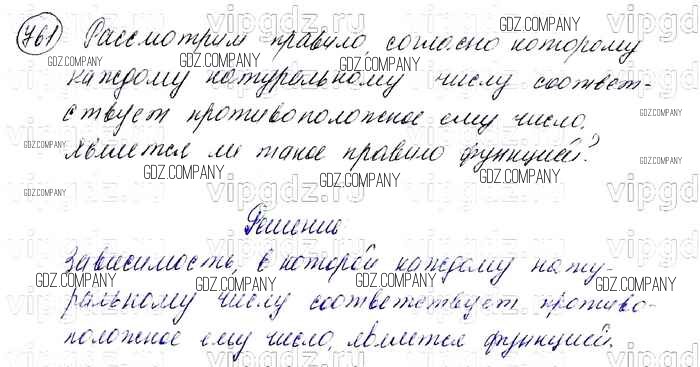 761 Рассмотрим правило, согласно которому
каждому натуральному числу соответ-
ствует противоположное ему число.
Является ли такое правило функцией?
Решение
Зависимость, в которой каждому нату-
ральному числу соответствует противо-
положное ему число, является функцией.
GDZ.COMPANY
vipgdz.ru